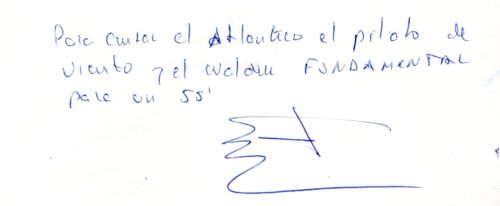 Para cruzar el Atlantico el piloto de
viento y el FUNDAMENTAL
para un 55'